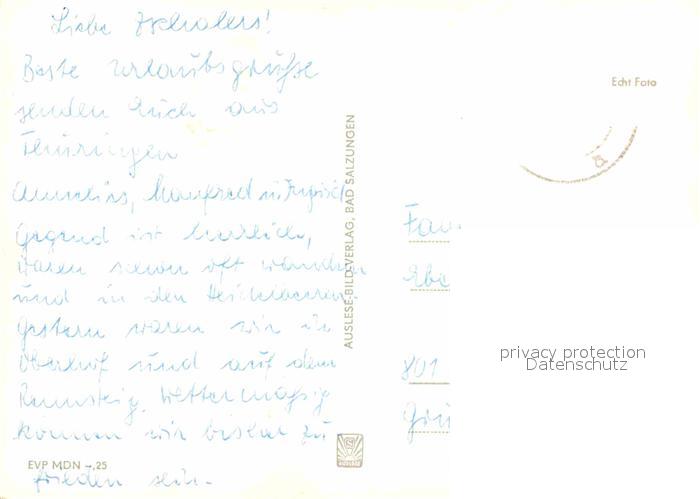 Liebe Zscholers!
Beste Urlaubsgrüße
senden Euch aus
Thüringen
Annelies, Manfred u.
Gegend ist herrlich,
waren schon oft wandern
und in den Heidelbeeren.
Gestern waren wir in
Oberhof und auf dem
Rennsteig. Wettermäßig
können wir bisher zu
frieden sein.
EVP MDN -,25
AUSLESE-BILD-VERLAG, BAD SALZUNGEN
Echt Foto
Fam.
801
privacy protection
Datenschutz